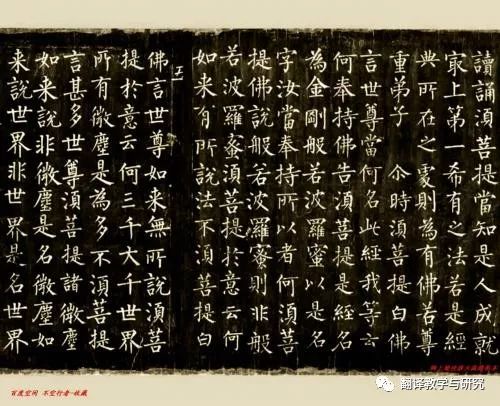 讀誦湏菩提當知是人成就
㝡上第一希有之法若是經
典所在之處則為有佛若尊
重弟子 尒時湏菩提白佛
言世尊當何名此經我等云
何奉持佛告湏菩提是經名
為金剛般若波羅蜜以是名
字汝當奉持所以者何湏菩
提佛說般若波羅蜜則非般
若波羅蜜湏菩提於意云何
如来有所說法不湏菩提白
佛言世尊如来無所說湏菩
提於意云何三千大千世界
所有微塵是為多不湏菩提
言甚多世尊湏菩提諸微塵
如来說非微塵是名微塵如
来說世界非世界是名世界
百度空间 不空行者-收藏
翻译教学与研究